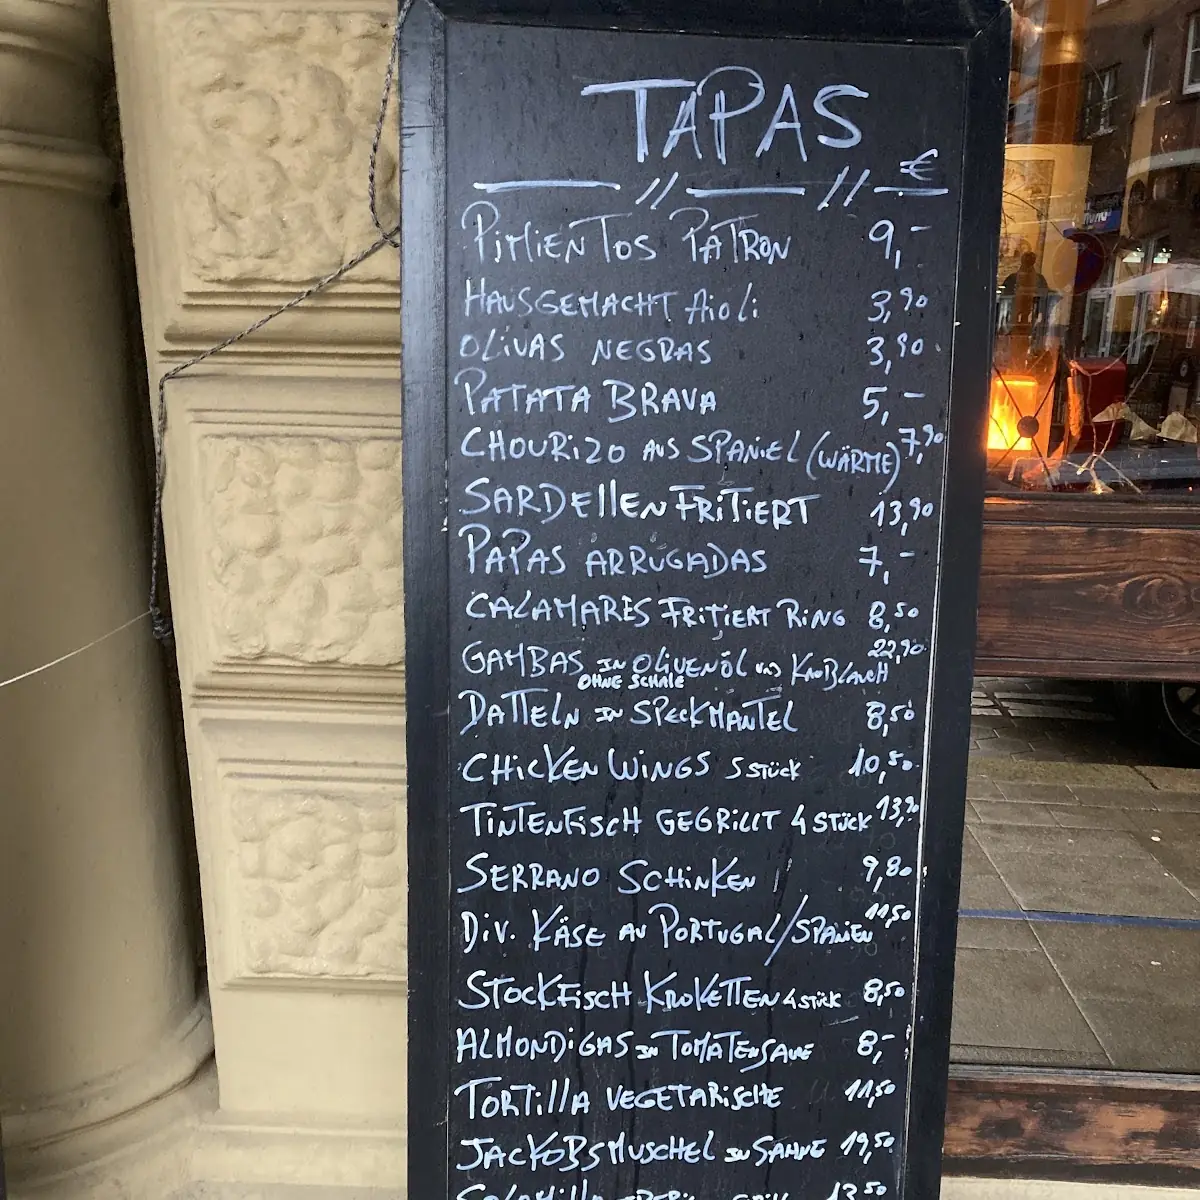 TAPAS
€
PIMIENTOS PATRON 9,-
HAUSGEMACHT AIOLI 3,90
OLIVAS NEGRAS 3,90
PATATA BRAVA 5,-
CHOURIZO AUS SPANIEL (WÄRME) 7,90
SARDELLEN FRITIERT 13,90
PAPAS ARRUGADAS 7,-
CALAMARES FRITIERT RING 8,50
GAMBAS IN OLIVENÖL UND KNOBLAUCH 22,90
OHNE SCHALE
DATTELN IN SPECKMANTEL 8,50
CHICKEN WINGS 5 STÜCK 10,50
TINTENFISCH GEGRILLT 4 STÜCK 13,90
SERRANO SCHINKEN 9,80
DIV. KÄSE AU PORTUGAL/SPANIEN 11,50
STOCKFISCH KROKETTEN 4 STÜCK 8,50
ALMONDIGAS IN TOMATENSAUE 8,-
TORTILLA VEGETARISCHE 11,50
JACKOBSMUSCHEL IN SAHNE 19,50